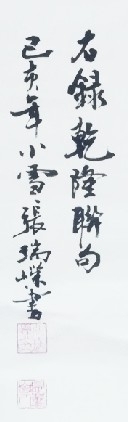 右録乾隆聯句
己亥年小雪張瑞嶸書